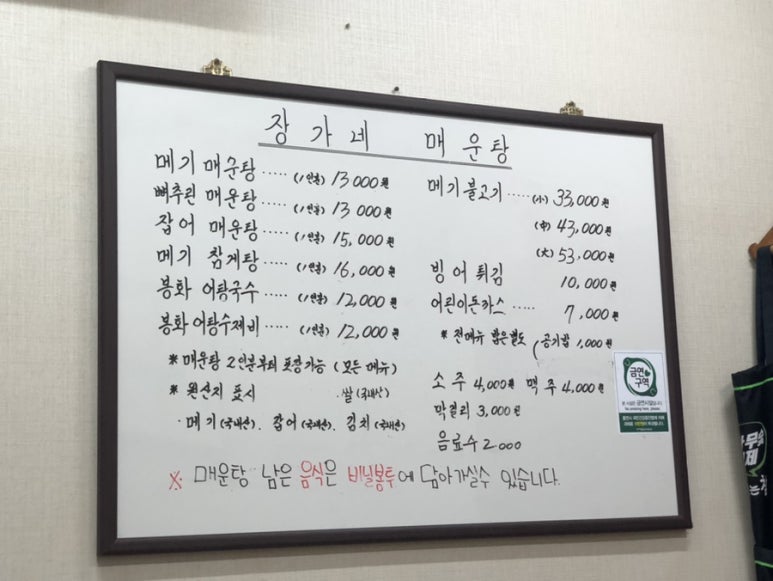 장가네 매운탕
메기 매운탕 ..... (1인분) 13000원
빠추린 매운탕 ..... (1인분) 13000원
잡어 매운탕 ..... (1인분) 15,000원
메기 참게탕 ..... (1인분) 16,000원
봉화 어탕국수 ..... (1인분) 12,000원
봉화 어탕수제비 ..... (1인분) 12,000원
* 매운탕 2인분부터 포장가능 (모든 메뉴)
* 원산지 표시 . 쌀(국내산)
. 메기(국내산). 잡어(국내산). 김치(국내산)
메기불고기 ..... (小) 33,000원
(中) 43,000원
(大) 53,000원
빙어 튀김 10,000원
어린이돈까스 ..... 7,000원
* 전메뉴 밥은별도 (공기밥 1,000원
소주 4,000원 맥주 4,000원
막걸리 3,000원
음료수 2000
※ 매운탕 남은 음식은 비닐봉투에 담아가실수 있습니다.
금연
구역